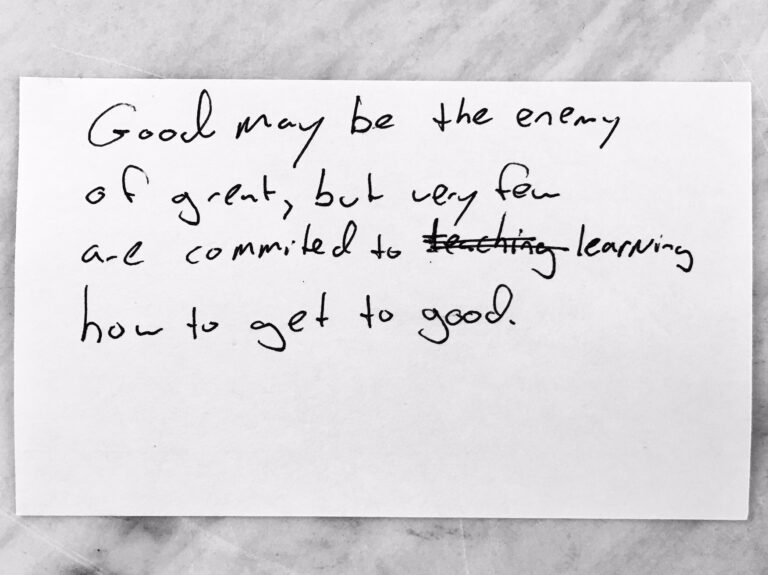 Good may be the enemy
of great, but very few
are commited to ~~teaching~~ learning
how to get to good.